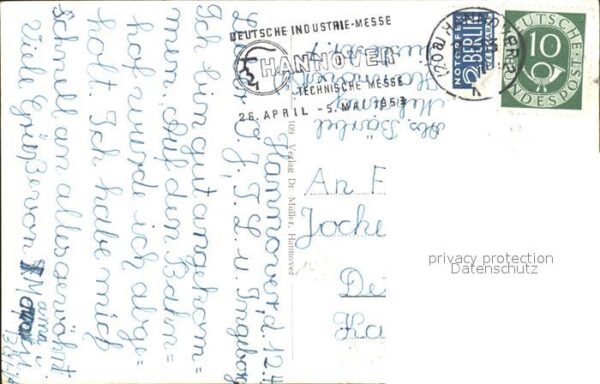 DEUTSCHE INDUSTRIE-MESSE
HANNOVER
TECHNISCHE MESSE
26. APRIL - 5. MAI 1953
NOTOPFER
2 BERLIN
STEUERMARKE
10
DEUTSCHE
BUNDESPOST
Abs. Bärbel
Hannover, d. 12.4.
Lieber O. J., T. L. u. Ingeborg
Ich bin gut angekom=
men. Auf den Bahn=
hof wurde ich abge=
holt. Ich habe mich
schnell an alles gewöhnt.
Viele Grüße von Mama u.
109 Verlag Dr. Muller, Hannover
An F
Joche
De
Ka
privacy protection
Datenschutz